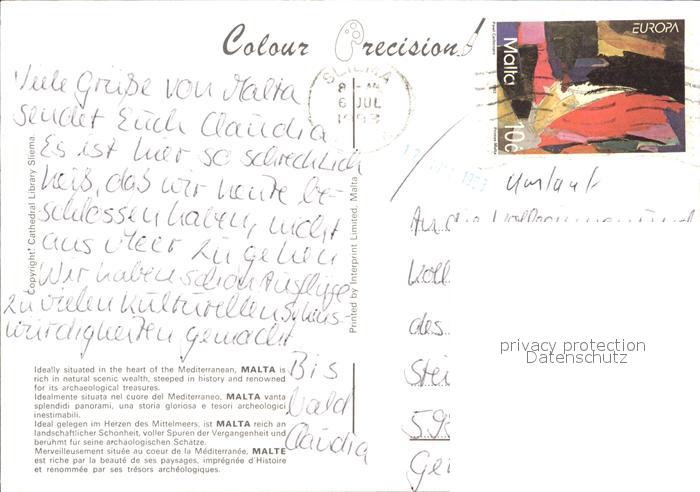 Colour Precision
Viele Grüße von Malta
sendet Euch Claudia
Es ist hier so schrecklich
heiß, daß wir heute be-
schlossen haben, nicht
ans Meer zu gehen
Wir haben schon Ausflüge
zu vielen kulturellen Sehens-
würdigkeiten gemacht
Bis
bald
Claudia
Copyright Cathedral Library Sliema.
Printed by Interprint Limited, Malta
Ideally situated in the heart of the Mediterranean, MALTA is
rich in natural scenic wealth, steeped in history and renowned
for its archaeological treasures.
Idealmente situata nel cuore del Mediterraneo, MALTA vanta
splendidi panorami, una storia gloriosa e tesori archeologici
inestimabili.
Ideal gelegen im Herzen des Mittelmeers, ist MALTA reich an
landschaftlicher Schönheit, voller Spuren der Vergangenheit und
berühmt für seine archäologischen Schätze.
Merveilleusement située au coeur de la Méditerranée, MALTE
est riche par la beauté de ses paysages, imprégnée d'Histoire
et renommée par ses trésors archéologiques.
SLIEMA
6 JUL
1993
EUROPA
Malta
10c
An die
Koll
des
Stei
privacy protection
Datenschutz